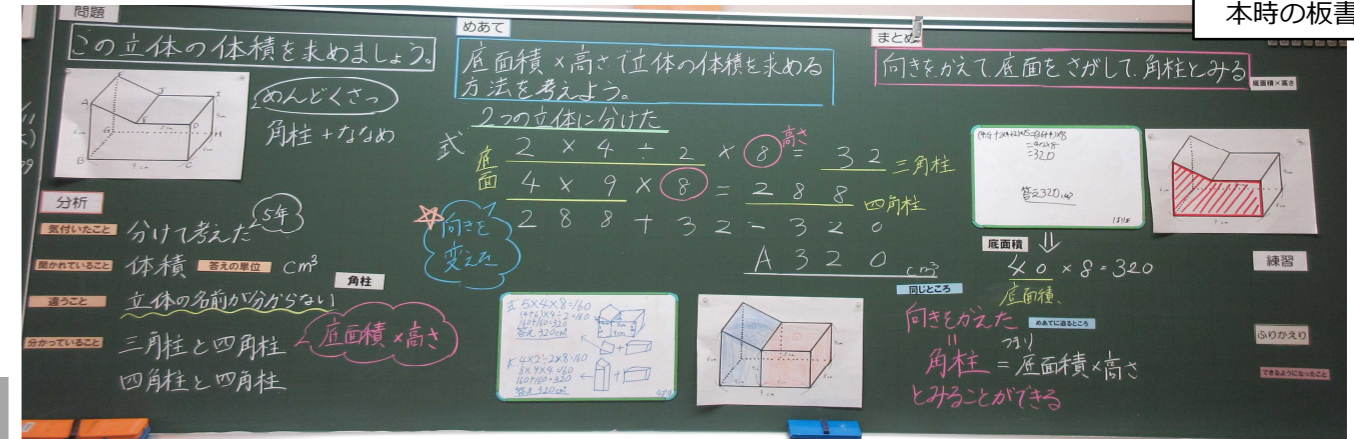 本時の板書
問題
この立体の体積を求めましょう。
めんどくさっ
角柱+ななめ
分析
気付いたこと 分けて考えた 5年
聞かれていること 体積 答えの単位 cm³
角柱
違うこと 立体の名前が分からない
分かっていること 三角柱と四角柱
四角柱と四角柱
底面積×高さ
めあて
底面積×高さで立体の体積を求める
方法を考えよう。
2つの立体に分けた
式 底面 2×4÷2×8=32 三角柱
高さ
4×9×8=288 四角柱
288+32=320
A 320 cm³
向きを
変えた
式 5×4×8=160
(4+6)×4÷2=160
160+160=320
答え 320cm³
8×4×4=160
160+160=320
答え 320cm²
まとめ
向きをかえて、底面をさがして、角柱とみる
底面積×高さ
=320
答え320cm³
底面積
40×8=320
底面積
同じところ
向きをかえた
めあてに迫るところ
つまり
角柱=底面積×高さ
とみることができる
練習
ふりかえり
できるようになったこと